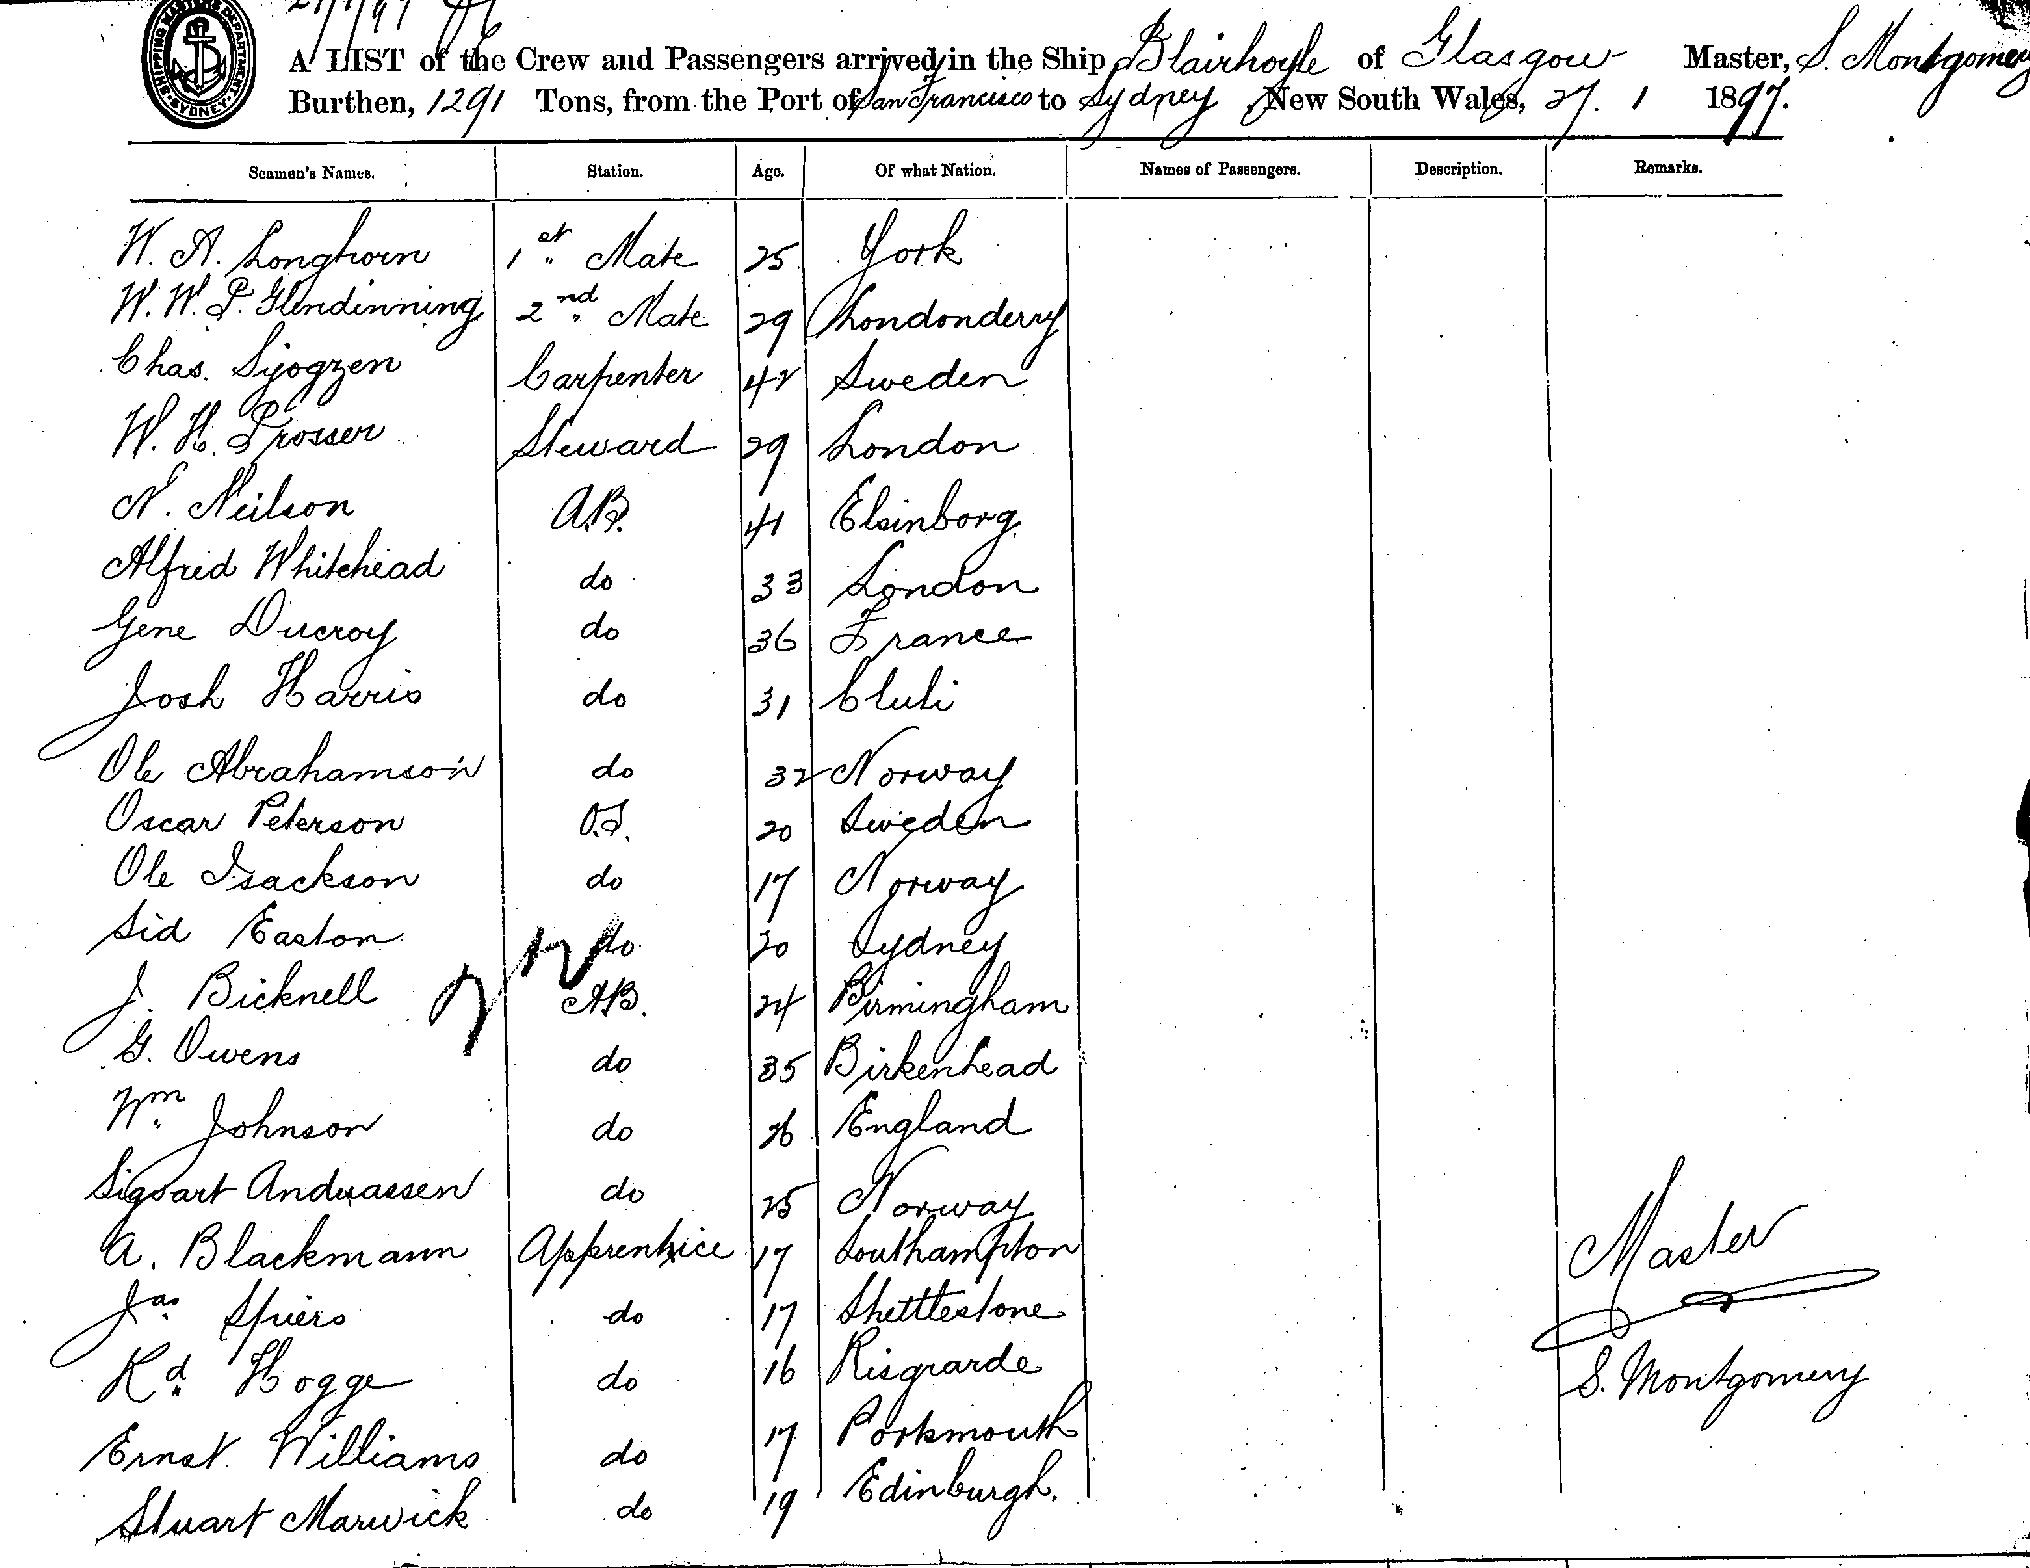 27/1/97
SHIPPING MASTERS DEPARTMENT SYDNEY
A LIST of the Crew and Passengers arrived in the Ship Blairhoyle of Glasgow Master, S. Montgomery
Burthen, 1291 Tons, from the Port of San Francisco to Sydney New South Wales, 27. 1 1897.
Seamen's Names. Station. Age. Of what Nation. Names of Passengers. Description. Remarks.
W. A. Longhorn 1st Mate 25 York
W. W. P. Glendinning 2nd Mate 29 Londonderry
Chas. Sjogzen Carpenter 42 Sweden
W. H. Prosser Steward 29 London
N. Neilson A.B. 41 Elsinborg
Alfred Whitehead do 33 London
Gene Ducroy do 36 France
Josh Harris do 31 Chili
Ole Abrahamson do 32 Norway
Oscar Peterson O.S. 20 Sweden
Ole Isackson do 17 Norway
Sid Easton do 20 Sydney
J. Bicknell A.B. 24 Birmingham
G. Owens do 35 Birkenhead
Wm Johnson do 26 England
Sigvart Andreassen do 25 Norway
A. Blackmann Apprentice 17 Southampton
Jas Spiers do 17 Shettlestone
Rd Hogge do 16 Risgrarde
Ernst. Williams do 17 Portsmouth
Stuart Marwick do 19 Edinburgh.
Master
S. Montgomery